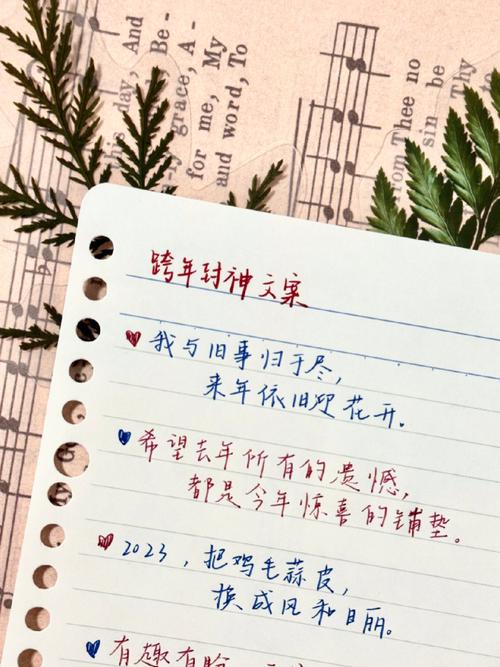 day, And
Be-
grace, A-
for me, My
and word, To
Thee no
sin be
Thy
跨年封神文案
我与旧事归于尽,
来年依旧迎花开。
希望去年所有的遗憾,
都是今年惊喜的铺垫。
2023,把鸡毛蒜皮,
换成风和日丽。
有趣有盼